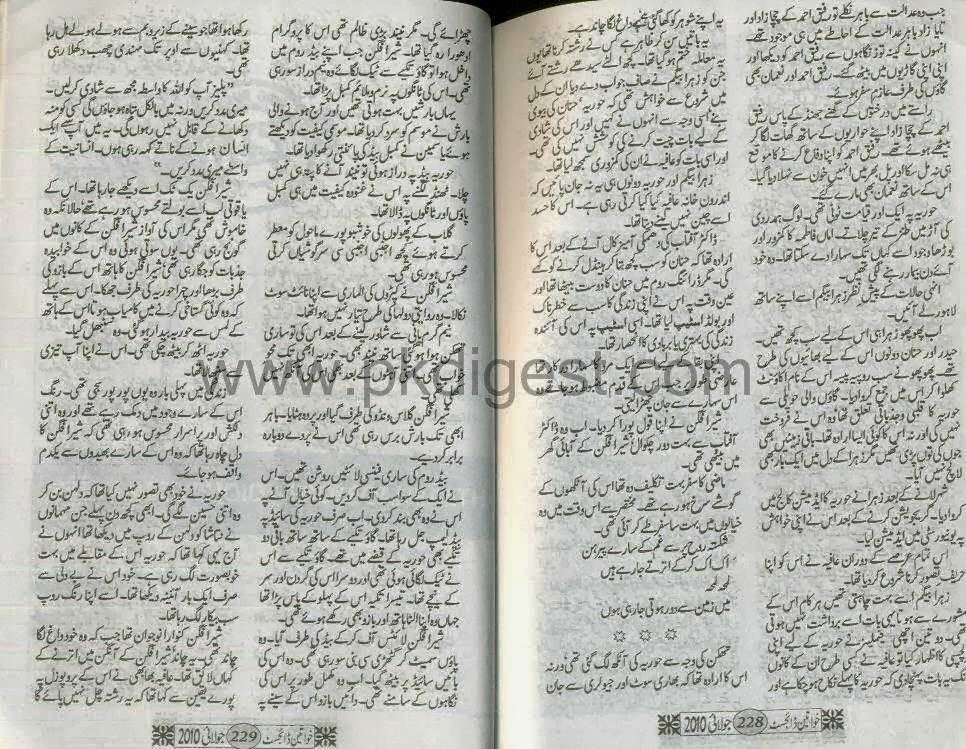 جب وہ عدالت سے باہر نکلے تو رفیق احمد کے چچا زاد اور
تایا زاد باہر عدالت کے احاطے میں ہی موجود تھے۔
انہوں نے کینہ توز نگاہوں سے رفیق احمد کو دیکھا اور
اپنی اپنی گاڑیوں میں بیٹھ گئے۔ رفیق احمد اور نعمان بھی
گاؤں کی طرف عازم سفر ہوئے۔
راستے میں درختوں کے گھنے جھنڈ کے پاس رفیق
احمد کے چچا زاد اپنے حواریوں کے ساتھ گھات لگا کر
بیٹھے ہوئے تھے۔ رفیق احمد کو اپنا دفاع کرنے کا موقع
ہی نہ مل سکا اور پل بھر میں انہیں خون سے نہلا دیا گیا۔
اس کے ساتھ نعمان بھی مارے گئے۔
حوریہ پہ ایک اور قیامت ٹوٹی تھی۔ لوگ ہمدردی
کی آڑ میں طنز کے تیر چلاتے۔ اماں فاطمہ کا کمزور اور
بوڑھا وجود اسے کہاں تک سہارا دے سکتا تھا۔ وہ خود
آئے دن بیمار رہنے لگی تھیں۔
انہی حالات کے پیش نظر زہرا بیگم اسے اپنے ساتھ
لاہور لے آئیں۔
اب پھوپھو زہرا ہی اس کے لیے سب کچھ تھیں۔
حیدر اور حنان دونوں اس کے لیے بھائیوں کی طرح
تھے۔ پھوپھو نے سب روپیہ پیسہ اس کے نام اکاؤنٹ
کھلوا کر اس میں جمع کروا دیا۔ گاؤں والی حویلی سے
حوریہ کا قلبی و جذباتی تعلق تھا وہ اس نے فروخت
نہیں کی اور نہ اس کا کوئی ایسا ارادہ تھا۔ باقی زمینیں بھی
جوں کی توں پڑی تھیں مگر زہرا کے دل میں ایک بار بھی
لالچ نہیں آیا۔
شہر لانے کے بعد زہرا نے حوریہ کا ایڈمیشن کالج میں
کروا دیا۔ گریجویشن کرنے کے بعد اس نے اپنی خواہش
پہ یونیورسٹی میں ایڈمیشن لیا۔
اس تمام عرصے کے دوران عافیہ نے اس کو اپنا
حریف تصور کرنا شروع کر دیا تھا۔
زہرا بیگم اسے بہت چاہتی تھیں ہر کام اس کے
مشورے سے ہوتا یہی بات اسے برداشت نہیں ہوتی
تھی۔ دو تین اچھی فیملیز نے حوریہ کے لیے اپنی
کا اظہار کیا تو عافیہ نے کسی طرح ان کے کانوں
تک یہ بات پہنچا دی کہ حوریہ کا پہلے نکاح ہو چکا ہے اور
یہ اپنے شوہر کو کھا گئی تنہا داغ لگا چاند ہے۔
یہ باتیں سن کر ظاہر ہے کس نے رشتہ کرنا تھا یوں
یہ معاملہ ختم ہو گیا تھا۔ کچھ الٹے سیدھے رشتے آئے
جن کو زہرا بیگم نے صاف جواب دے دیا ان کے دل
میں شروع سے خواہش تھی کہ حوریہ حنان کی بیوی
بنے اسی وجہ سے انہوں نے کہیں اور اس کی شادی
کے لیے بات چیت کرنے کی کوشش نہیں کی تھی۔
اور اسی بات کو عافیہ نے ان کی کمزوری سمجھ لیا تھا۔
زہرا بیگم اور حوریہ دونوں ہی یہ نہ جان پائیں کہ
اندرون خانہ عافیہ کیا کیا کرتی رہی ہے۔ اس کا حسد
اسے چین نہیں لینے دیتا تھا۔
ڈاکٹر آفتاب کی دھمکی آمیز کال آنے کے بعد اس کا
ارادہ تھا کہ حنان کو سب کچھ بتا کر ہینڈل کرنے کو کہے
گی۔ مگر ڈرائنگ روم میں حنان کا دوست بیٹھا تھا اور
عین وقت پہ اس نے اپنی زندگی کا سب سے خطرناک
اور بولڈ اسٹیپ لیا تھا۔ اسی اسٹیپ پہ اس کی آئندہ
زندگی کی بہتری یا بربادی کا انحصار تھا۔
عارضی
اس سہارے سے جان چھڑا لیتی۔
شیر افگن نے اپنا قول پورا کر دیا۔ اب وہ ڈاکٹر
آفتاب سے بہت دور چکوال شیر افگن کے آبائی گھر
میں بیٹھی تھی۔
ماضی کا سفر بہت تکلیف دہ تھا اس کی آنکھوں کے
گوشے سرخ ہو رہے تھے۔ مختصر سے اس وقت میں وہ
خیالوں میں بہت سا سفر طے کر آئی تھی۔
شکستہ روح پر سے غم کے سارے پیرہن
اک اک کر کے اترتے جا رہے ہیں
لمحہ لمحہ
میں زمین سے دور ہوتی جا رہی ہوں
☼ ☼ ☼
تھکن کی وجہ سے حوریہ کی آنکھ لگ گئی تھی ورنہ
اس کا ارادہ تھا کہ بھاری سوٹ اور جیولری سے جان
خواتین ڈائجسٹ 228 جولائی 2010
چھڑائے گی۔ مگر نیند بڑی ظالم تھی اس کا پروگرام
ادھورا رہ گیا تھا۔ شیر افگن جب اپنے بیڈ روم میں
داخل ہوا تو گاؤ تکیے سے ٹیک لگائے وہ نیم دراز سو رہی
تھی۔ اس کی ٹانگوں پہ نرم و ملائم کمبل پڑا تھا۔
یہاں بہار میں بہت ہوتی تھیں اور پھر ہونے والی
بارش نے موسم کو سرد کر دیا تھا۔ موسمی کیفیت کو دیکھتے
ہوئے یاسمین نے کمبل بیڈ کی پائنتی رکھوا دیا تھا۔
حوریہ بیڈ پہ دراز ہوئی تو نیند آنے کا پتہ ہی نہیں
چلا۔ ٹھنڈ لگنے پہ اس نے غنودہ کیفیت میں ہی کمبل
پاؤں اور ٹانگوں پہ ڈالا تھا۔
گلاب کے پھولوں کی خوشبو پورے ماحول کو معطر
کرتے ہوئے کچھ اجنبی اجنبی سی سرگوشیاں کرتی
محسوس ہو رہی تھی۔
شیر افگن نے کپڑوں کی الماری سے اپنا نائٹ سوٹ
نکالا۔ وہ روایتی دولہا کی طرح تیار نہیں ہوا تھا۔
نیم گرم پانی سے شاور لینے کے بعد اس کی تو ساری
تھکن ہوا ہو
شیر افگن گلاس ونڈو کی طرف گیا اور پردہ ہٹایا۔ باہر
ابھی تک بارش برس رہی تھی اس نے پردے دوبارہ
برابر کر دیے۔
بیڈ روم کی ساری فینسی لائٹیں روشن تھیں۔ اس
نے ایک کے سوا سب آف کر دیں۔ کوئی خیال آنے پہ
اس نے وہ بھی بند کر دی۔ اب صرف حوریہ کی سائیڈ پہ
لیمپ جل رہا تھا۔ گاؤ تکیے کے ساتھ ساتھ باقی دو
تکیے بھی حوریہ کے قبضے میں تھے۔ گاؤ تکیے سے اس
نے ٹیک لگائی ہوئی تھی اور دوسرا اس کی گردن اور سر
کے نیچے تھا۔ تیسرا تکیہ اس کے پہلو کے پاس پڑا تھا
جہاں وہ
شیر افگن لائٹس آف کر کے بیڈ کی طرف گیا۔ وہ
پاؤں سمیٹ کر گٹھڑی سی بنی سو رہی تھی۔ وہ اس کی
سائیڈ پر بیٹھ گیا۔ اب وہ مکمل طور پر اس کی
نگاہوں کے سامنے تھی۔ دائیں بازو اس کے سینے پہ
رکھا ہوا تھا جو سینے کے زیر و بم سے ہولے ہولے ہل رہا
تھا۔ کہنیوں سے اوپر تک مہندی چھب دکھلا رہی
تھی۔
"پلیز آپ کو اللہ کا واسطہ مجھ سے شادی کر لیں۔
میری مدد کریں ورنہ میں بالکل تباہ ہو جاؤں گی کسی کو منہ
دکھانے کے قابل نہیں رہوں گی۔ یہ میں آپ سے ایک
انسان ہونے کے ناتے کہہ رہی ہوں۔ انسانیت کے
واسطے میری مدد کریں۔"
شیر افگن یک ٹک اسے دیکھے جا رہا تھا۔ اس کے
یاقوتی لب اسے بولتے محسوس ہو رہے تھے حالانکہ وہ
خاموش تھی مگر اس کی آواز شیر افگن کے کانوں میں
گونج رہی تھی۔ یوں سوتی ہوئی وہ اس کے خوابیدہ
جذبات کو جگا رہی تھی شیر افگن کا ہاتھ اس کے بازو کی
طرف بڑھا اور چہرہ حوریہ کی طرف جھکا۔ اس سے پہلے
کہ وہ کوئی گستاخی کرنے میں کامیاب ہوتا اس کے ہاتھ
کے لمس سے حوریہ بیدار ہو گئی۔ وہ سنبھل گیا۔
حوریہ اٹھ کر بیٹھ چکی تھی۔ اس نے اپنا آپ تیزی
زندگی میں پہلی بار وہ یوں پور پور سجی تھی۔ رنگ
اس کے سارے وجود میں دمک رہے تھے اور وہ اتنی
دلکش اور پراسرار محسوس ہو رہی تھی کہ شیر افگن کا
دل چاہ رہا تھا کہ وہ اس کے سارے بھیدوں سے یکدم
واقف ہو جائے۔
حوریہ نے خود بھی تصور نہیں کیا تھا کہ دلہن بن کر
وہ اتنی حسین لگے گی۔ ابھی کچھ دن پہلے جن مہمانوں
نے نتاشا کو دلہن کے روپ میں دیکھا تھا انہوں نے
آج یہی کہا تھا کہ حوریہ اس کے مقابلے میں بہت
خوبصورت لگ رہی ہے۔ خود اس نے بے دلی سے
صرف ایک بار آئینہ دیکھا تھا۔ اسے اپنا رنگ روپ
سب بیکار لگ رہا تھا۔
شیر افگن کنوارا نوجوان تھا جب کہ وہ خود داغ لگا
چاند تھی۔ یہ چاند شیر افگن کے آنگن میں اترنے کے
کہاں لائق تھا۔ عافیہ بھابھی نے اس کے پروپوزل پہ
پورے یقین سے کہا تھا کہ یہ رشتہ چل نہیں پائے گا
خواتین ڈائجسٹ 229 جولائی 2010
www.pkdigest.com